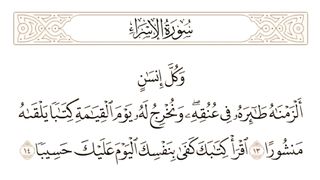 سُورَةُ الْإِسْرَاءِ
وَكُلَّ إِنسَٰنٍ
أَلْزَمْنَٰهُ طَٰٓئِرَهُۥ فِى عُنُقِهِۦ ۖ وَنُخْرِجُ لَهُۥ يَوْمَ ٱلْقِيَٰمَةِ كِتَٰبًا يَلْقَىٰهُ
مَنشُورًا ١٣ ٱقْرَأْ كِتَٰبَكَ كَفَىٰ بِنَفْسِكَ ٱلْيَوْمَ عَلَيْكَ حَسِيبًا ١٤